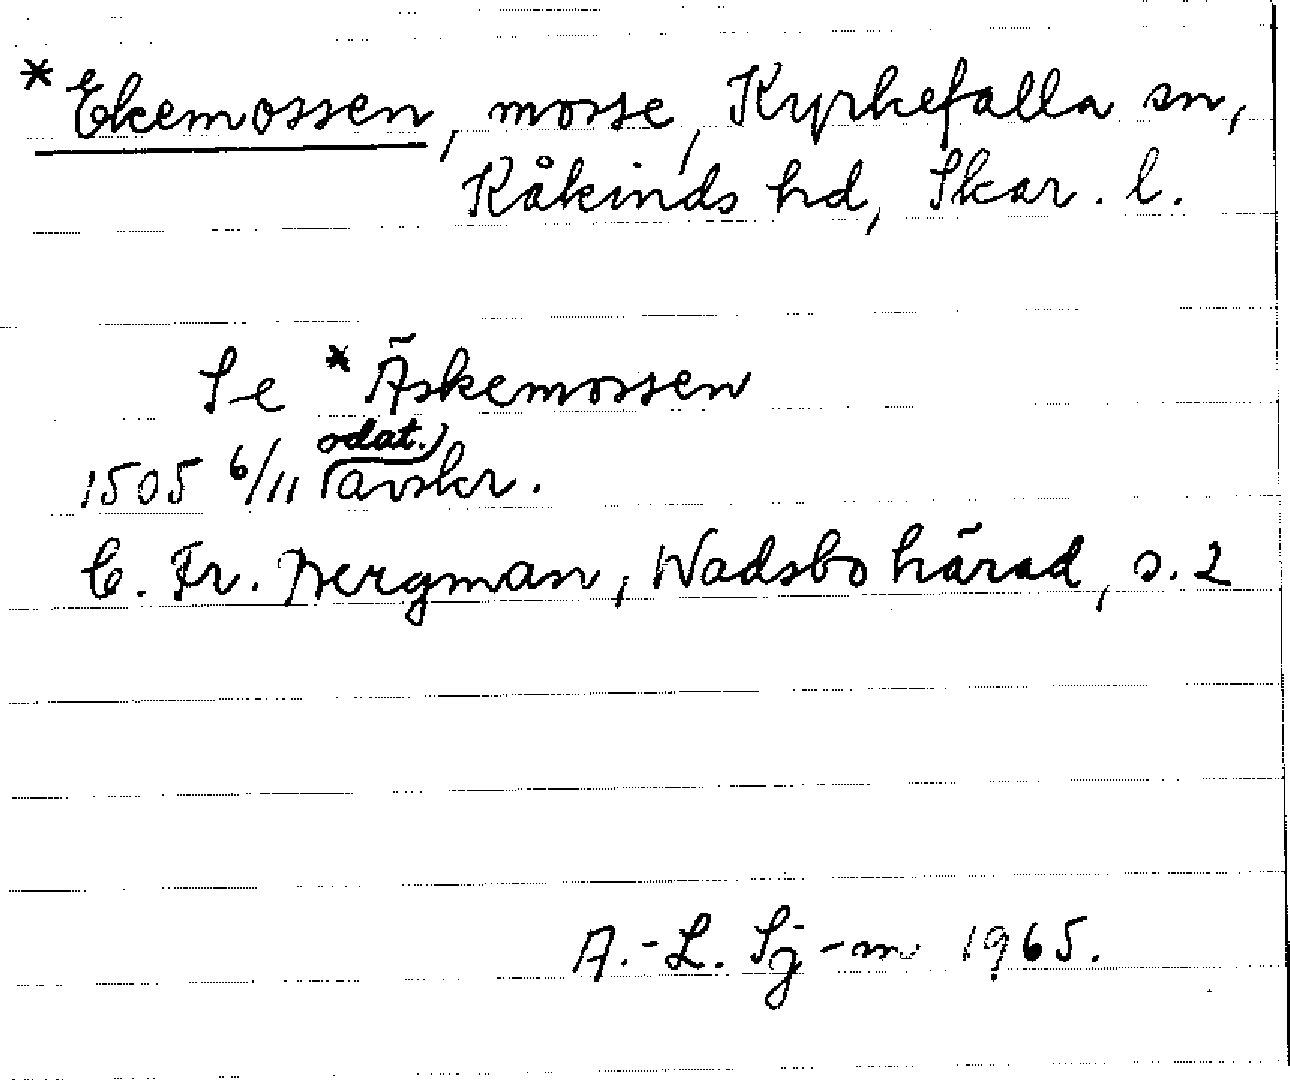 *Ekemossen, mosse, Kyrkefalla sn,
Kåkinds hd, Skar. l.
Se *Äskemossen
1505 6/11 odat. avskr.
C. Fr. Bergman, Wadsbo härad, s. 2
A.-L. Sj-m 1965.